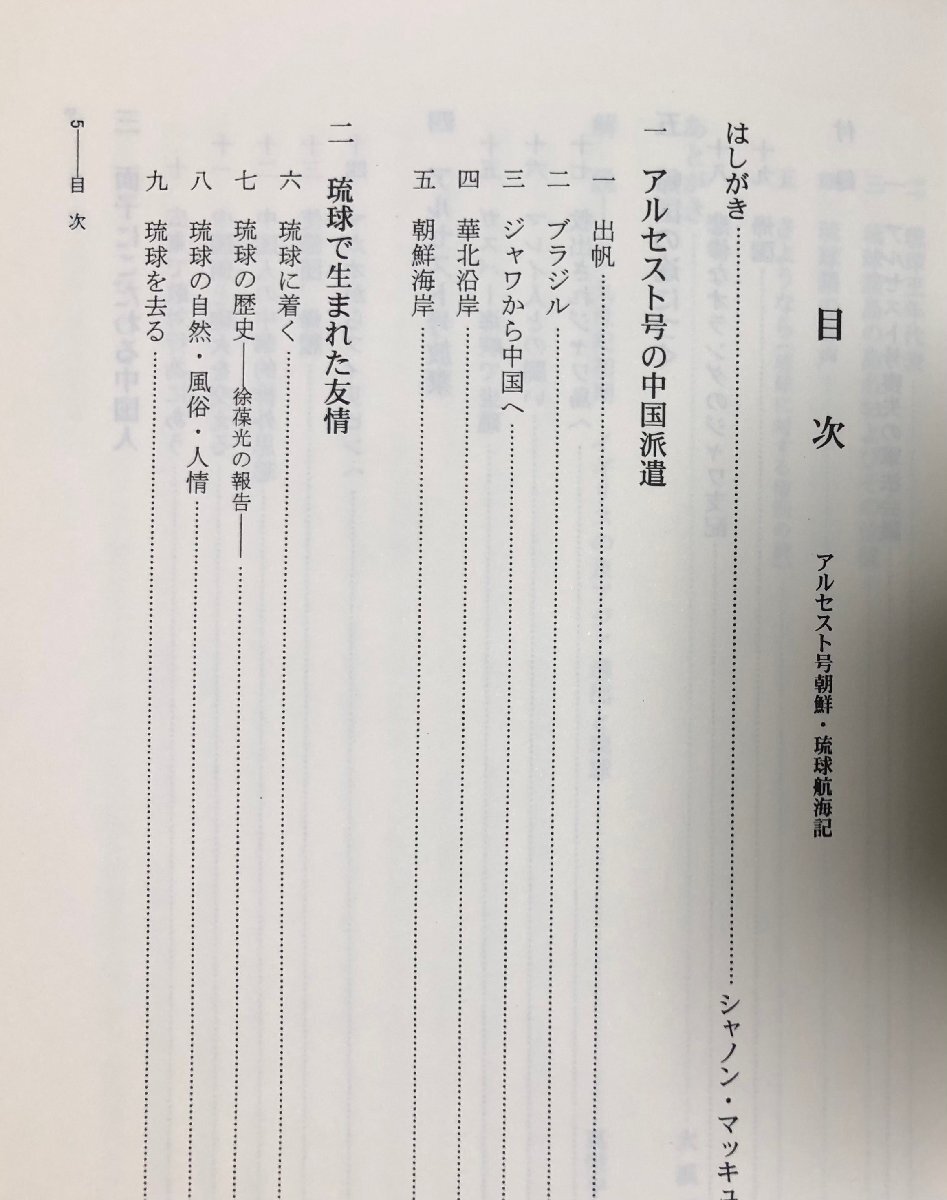 目次　アルセスト号朝鮮・琉球航海記
はしがき……シャノン・マッキュ
一　アルセスト号の中国派遣
一　出帆……
二　ブラジル……
三　ジャワから中国へ……
四　華北沿岸……
五　朝鮮海岸……
二　琉球で生まれた友情
六　琉球に着く……
七　琉球の歴史――徐葆光の報告――……
八　琉球の自然・風俗・人情……
九　琉球を去る……
5――目　次